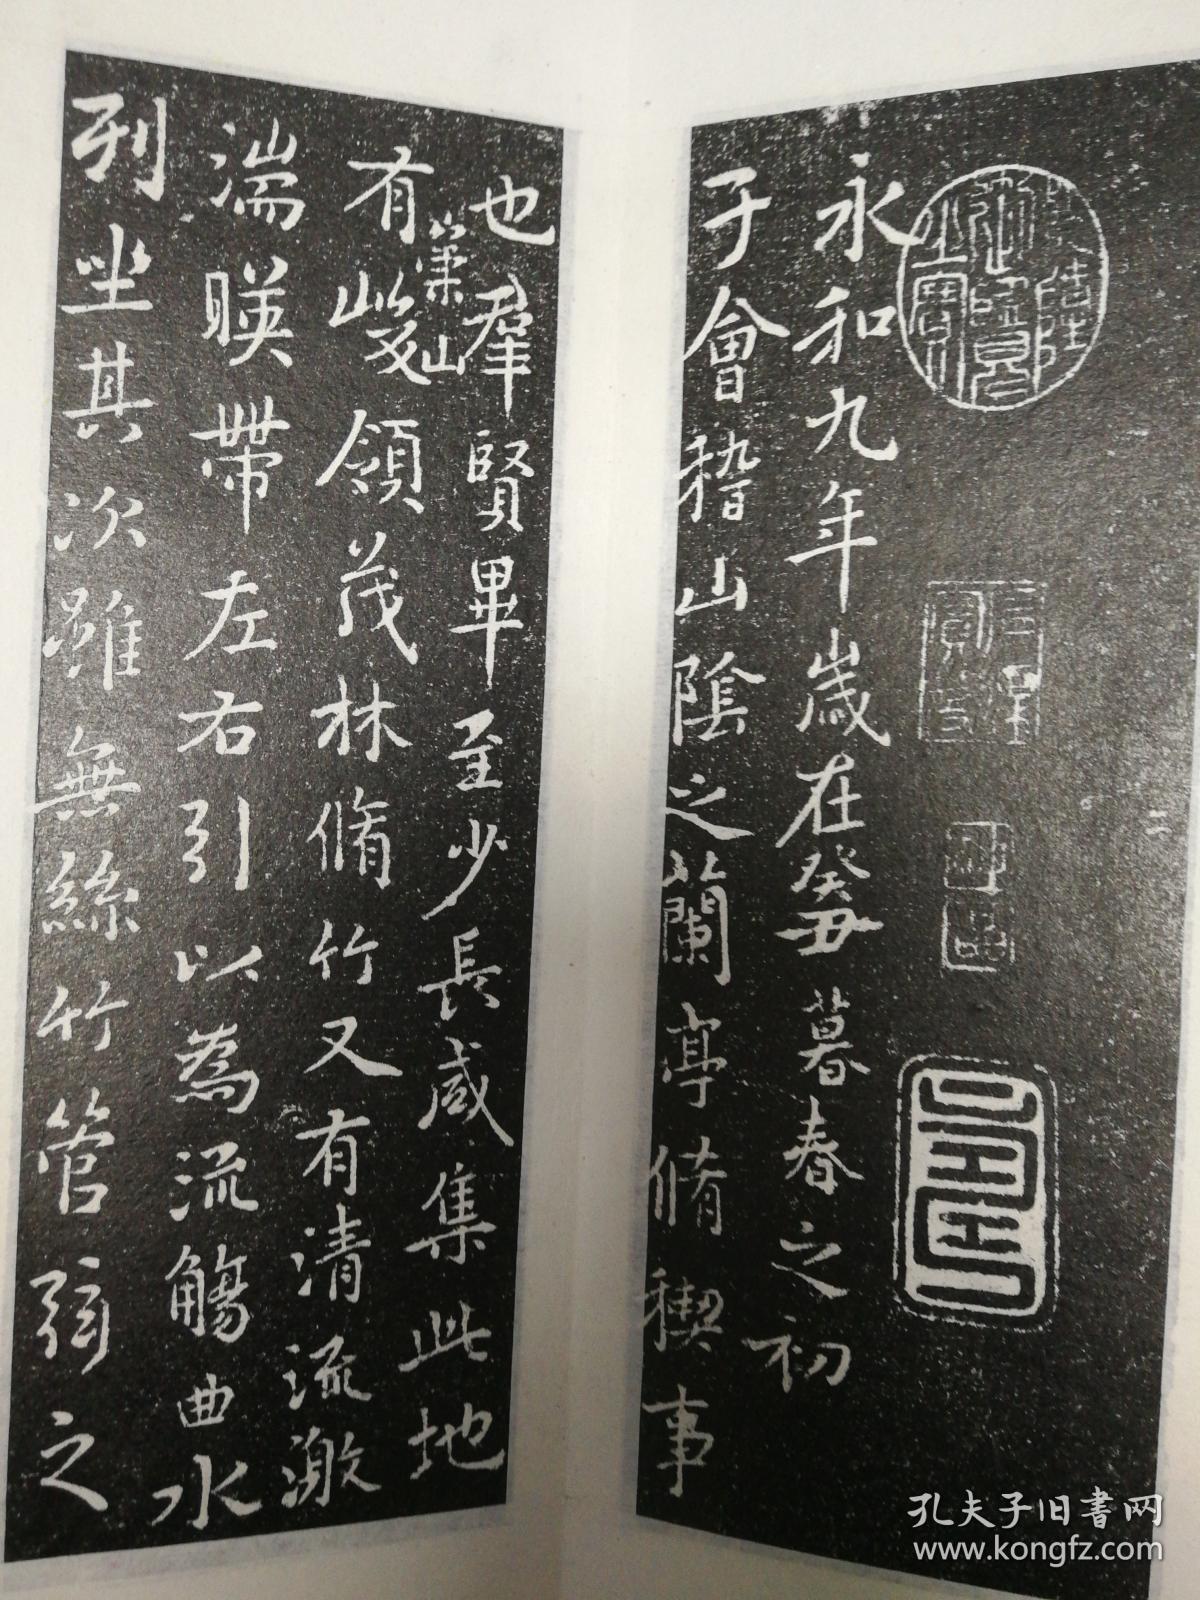 二
永和九年歲在癸丑暮春之初會
于會稽山陰之蘭亭脩稧事
也羣賢畢至少長咸集此地
崇山
有峻領茂林脩竹又有清流激
湍暎帶左右引以為流觴曲水
列坐其次雖無絲竹管弦之
孔夫子旧書网
www.kongfz.com